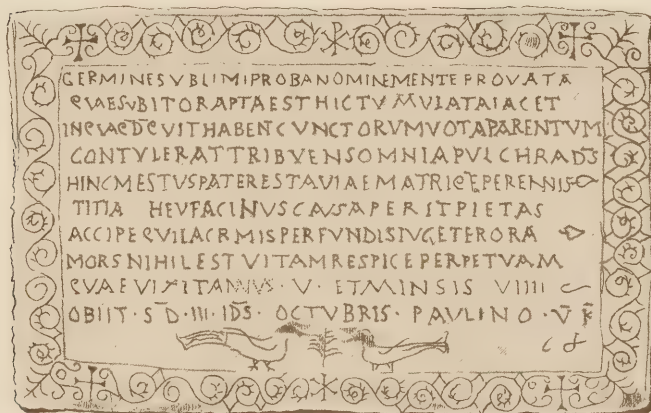 GERMINESVBLIMIPROBANOMINEMENTEPROVATA
QVAESVBITORAPTAESTHICTVMVLATAIACET
INQVAED̄QVITHABENCVNCTORUMVOTAPARENTUM
CONTVLERATTRIBVENSOMNIAPVLCHRAD̄S̄
HINCMESTUSPATERESTAVIAEMATRIQEPERENNIS
TITIA HEVFACINUSCAVSAPERITPIETAS
ACCIPEQVILACRMISPERFUNDISIVGETERORA
MORSNIHILESTVITAMRESPICEPERPETVAM
QVAEVIXITANNUS · V · ETMINSIS VIIII
OBIIT · S̄D̄ · III · ID̄S̄ · OCTVBRIS · PAVLINO · V̄ K̄